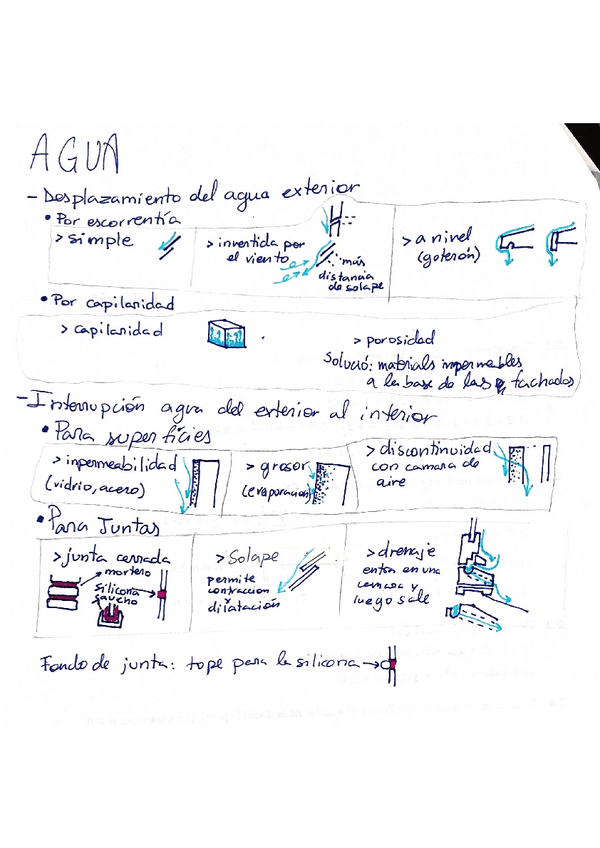 AGUA
- Desplazamiento del agua exterior
• Por escorrentía
> simple
> invertida por
el viento
más
distancia
de solape
> a nivel
(goterón)
• Por capilaridad
> capilaridad
> porosidad
Solució: materials impermeables
a la base de las fachadas
- Interrupción agua del exterior al interior
• Para superfícies
> inpermeabilidad
(vidrio, acero)
> grosor
(evaporación)
> discontinuidad
con camara de
aire
• Para Juntas
> junta cerrada
mortero
silicona
caucho
> Solape
permite
contraccion
y
dilatación
> drenaje
entra en una
cerrada y
luego sale
Fondo de junta: tope para la silicona →